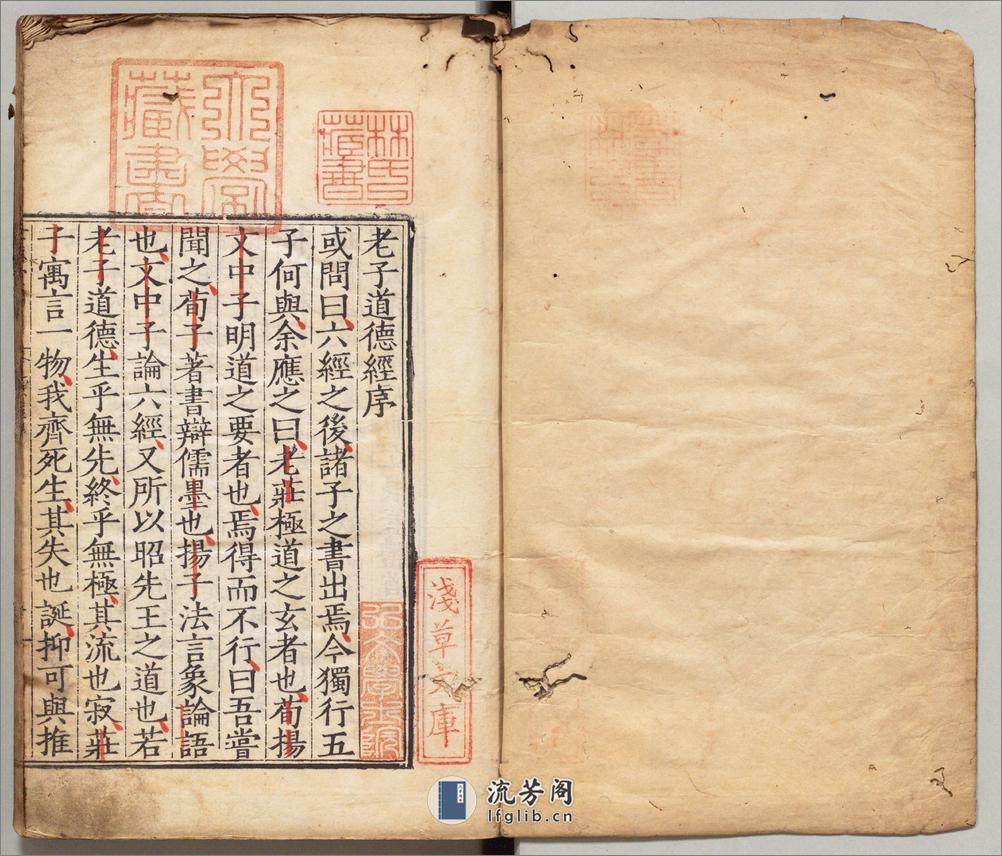 老子道德經序
或問曰六經之後諸子之書出焉今獨行五
子何與余應之曰老莊極道之玄者也荀揚
文中子明道之要者也焉得而不行曰吾嘗
聞之荀子著書辯儒墨也揚子法言象論語
也文中子論六經又所以昭先王之道也若
老子道德生乎無先終乎無極其流也寂莊
子寓言一物我齊死生其失也誕抑可與推
大學
藏書
林氏
藏書
淺草文庫
流芳阁
lfglib.cn